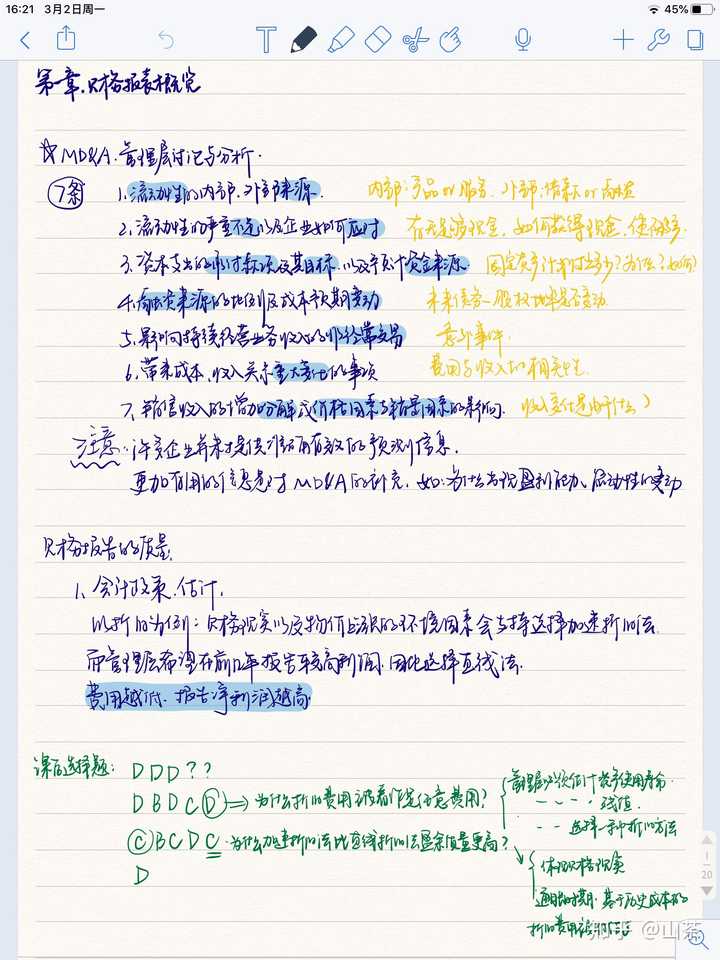 16:21 3月2日周一
45%
T
第一章.财务报表概览
☆ MD&A.管理层讨论与分析.
7条
1. 流动性的内部、外部来源. 内部:产品or服务. 外部:借款or
2. 流动性的严重不足以及企业如何应对 有无足够现金、如何获得现金、使用
3. 资本支出的 及其目标.以及预计资金来源. 固定资产计划付出多少?为什么?如何?
4. 融资来源的 及成本预期变动 未来债务-股权 是否变动
5. 影响持续经营业务收入的非经常交易 意外事件.
6. 带来成本、收入关系重大变化的事项 费用与收入的相关性
7. 销售收入的增加分解成价格因素与销量因素的影响. 收入变化是由于什么?
注意:许多企业并未提供 有效的预测信息.
更加有用的信息是对MD&A的补充,如:为什么出现盈利能力、流动性的变动
财务报告的质量.
1、会计政策.估计.
以折旧为例:财务现实以及物价上涨的环境因素会支持选择加速折旧法.
而管理层希望在前几年报告较高利润.因此选择直线法.
费用越低.报告净利润越高.
课后选择题: D D D ? ?
D B D C D ⇒ 为什么折旧费用被看作是任意费用?
管理层必须估计资产使用寿命.
- - - - 残值.
- - 选择一种折旧方法
C B C D C.为什么加速折旧法比直线折旧法盈余质量更高?
体现财务现实
通胀时期.基于历史成本的
折旧费用
D
1
20
知乎 @山茶